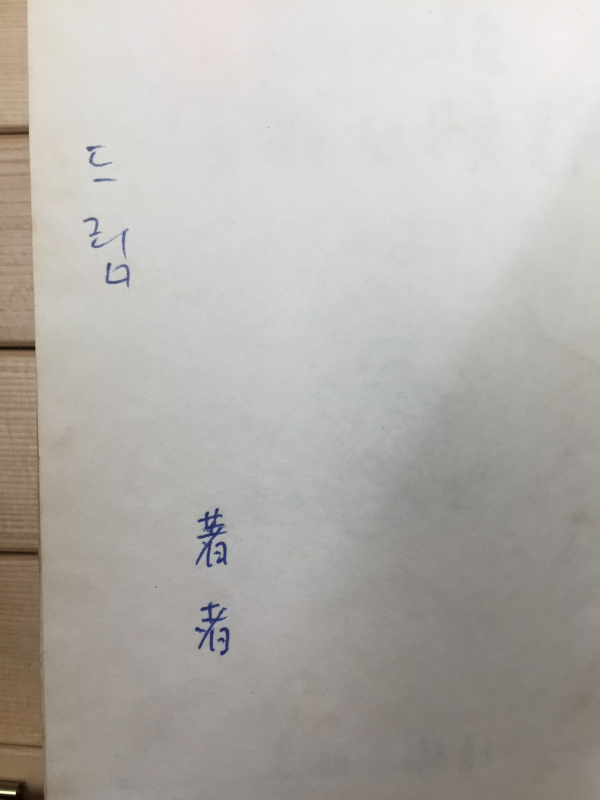 著者
드림